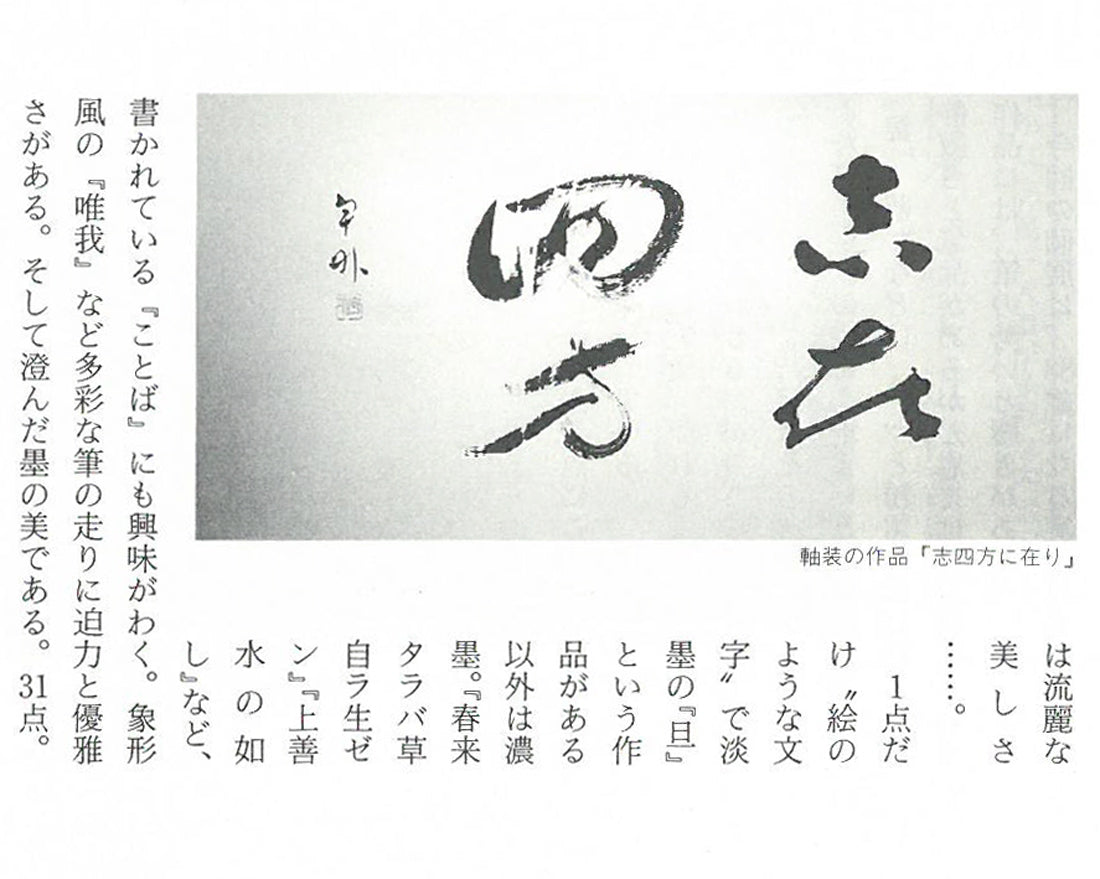 志在
四方
軸装の作品『志四方に在り』
は流麗な
美しさ
……。
1点だ
け〝絵の
ような文
字〟で淡
墨の『旦』
という作
品がある
以外は濃
墨。『春来
タラバ草
自ラ生ゼ
ン』『上善
水の如
し』など、
書かれている『ことば』にも興味がわく。象形
風の『唯我』など多彩な筆の走りに迫力と優雅
さがある。そして澄んだ墨の美である。31点。